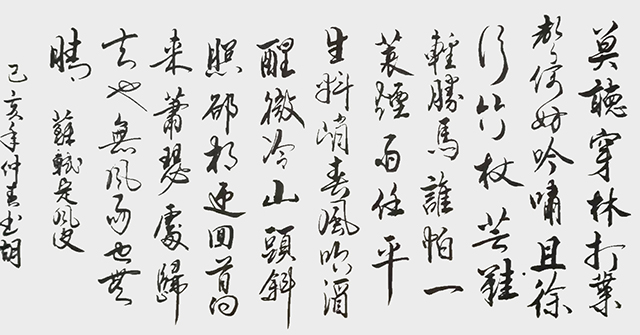 莫聽穿林打葉
聲何妨吟嘯且徐
行竹杖芒鞋
輕勝馬誰怕一
蓑煙雨任平
生料峭春風吹酒
醒微冷山頭斜
照卻相迎回首向
來蕭瑟處歸
去也無風雨也無
晴 蘇軾定風波
己亥年仲春書胡